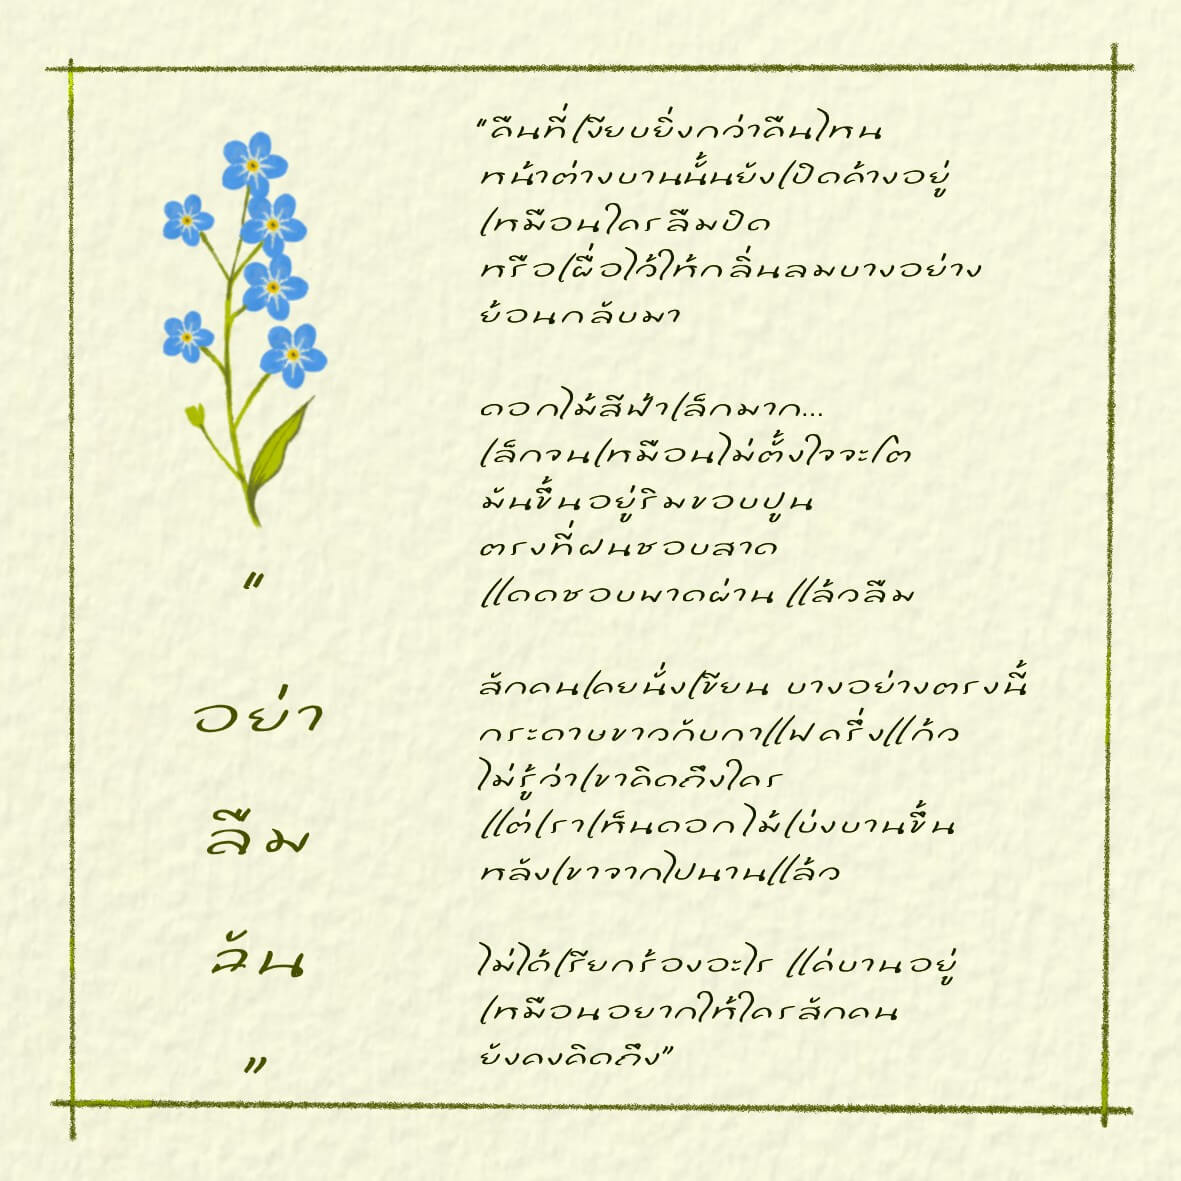 "
อย่า
ลืม
ฉัน
"
"คืนที่เงียบยิ่งกว่าคืนไหน
หน้าต่างบานนั้นยังเปิดค้างอยู่
เหมือนใครลืมปิด
หรือเผื่อไว้ให้กลิ่นลมบางอย่าง
ย้อนกลับมา
ดอกไม้สีฟ้าเล็กมาก...
เล็กจนเหมือนไม่ตั้งใจจะโต
มันขึ้นอยู่ริมขอบปูน
ตรงที่ฝนชอบสาด
แดดชอบพาดผ่าน แล้วลืม
สักคนเคยนั่งเขียน บางอย่างตรงนี้
กระดาษขาวกับกาแฟครึ่งแก้ว
ไม่รู้ว่าเขาคิดถึงใคร
แต่เราเห็นดอกไม้เบ่งบานขึ้น
หลังเขาจากไปนานแล้ว
ไม่ได้เรียกร้องอะไร แค่บานอยู่
เหมือนอยากให้ใครสักคน
ยังคงคิดถึง"